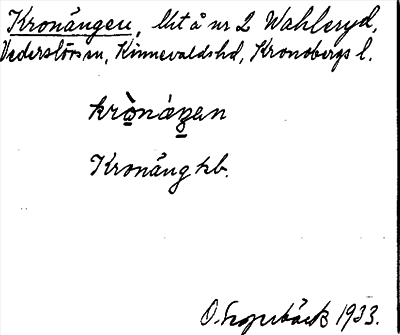 Kronängen, lht å nr 2 Wahleryd,
Vederslövs sn, Kinnevalds hd, Kronobergs l.
krònáŋen
Kronäng kb.
1933.